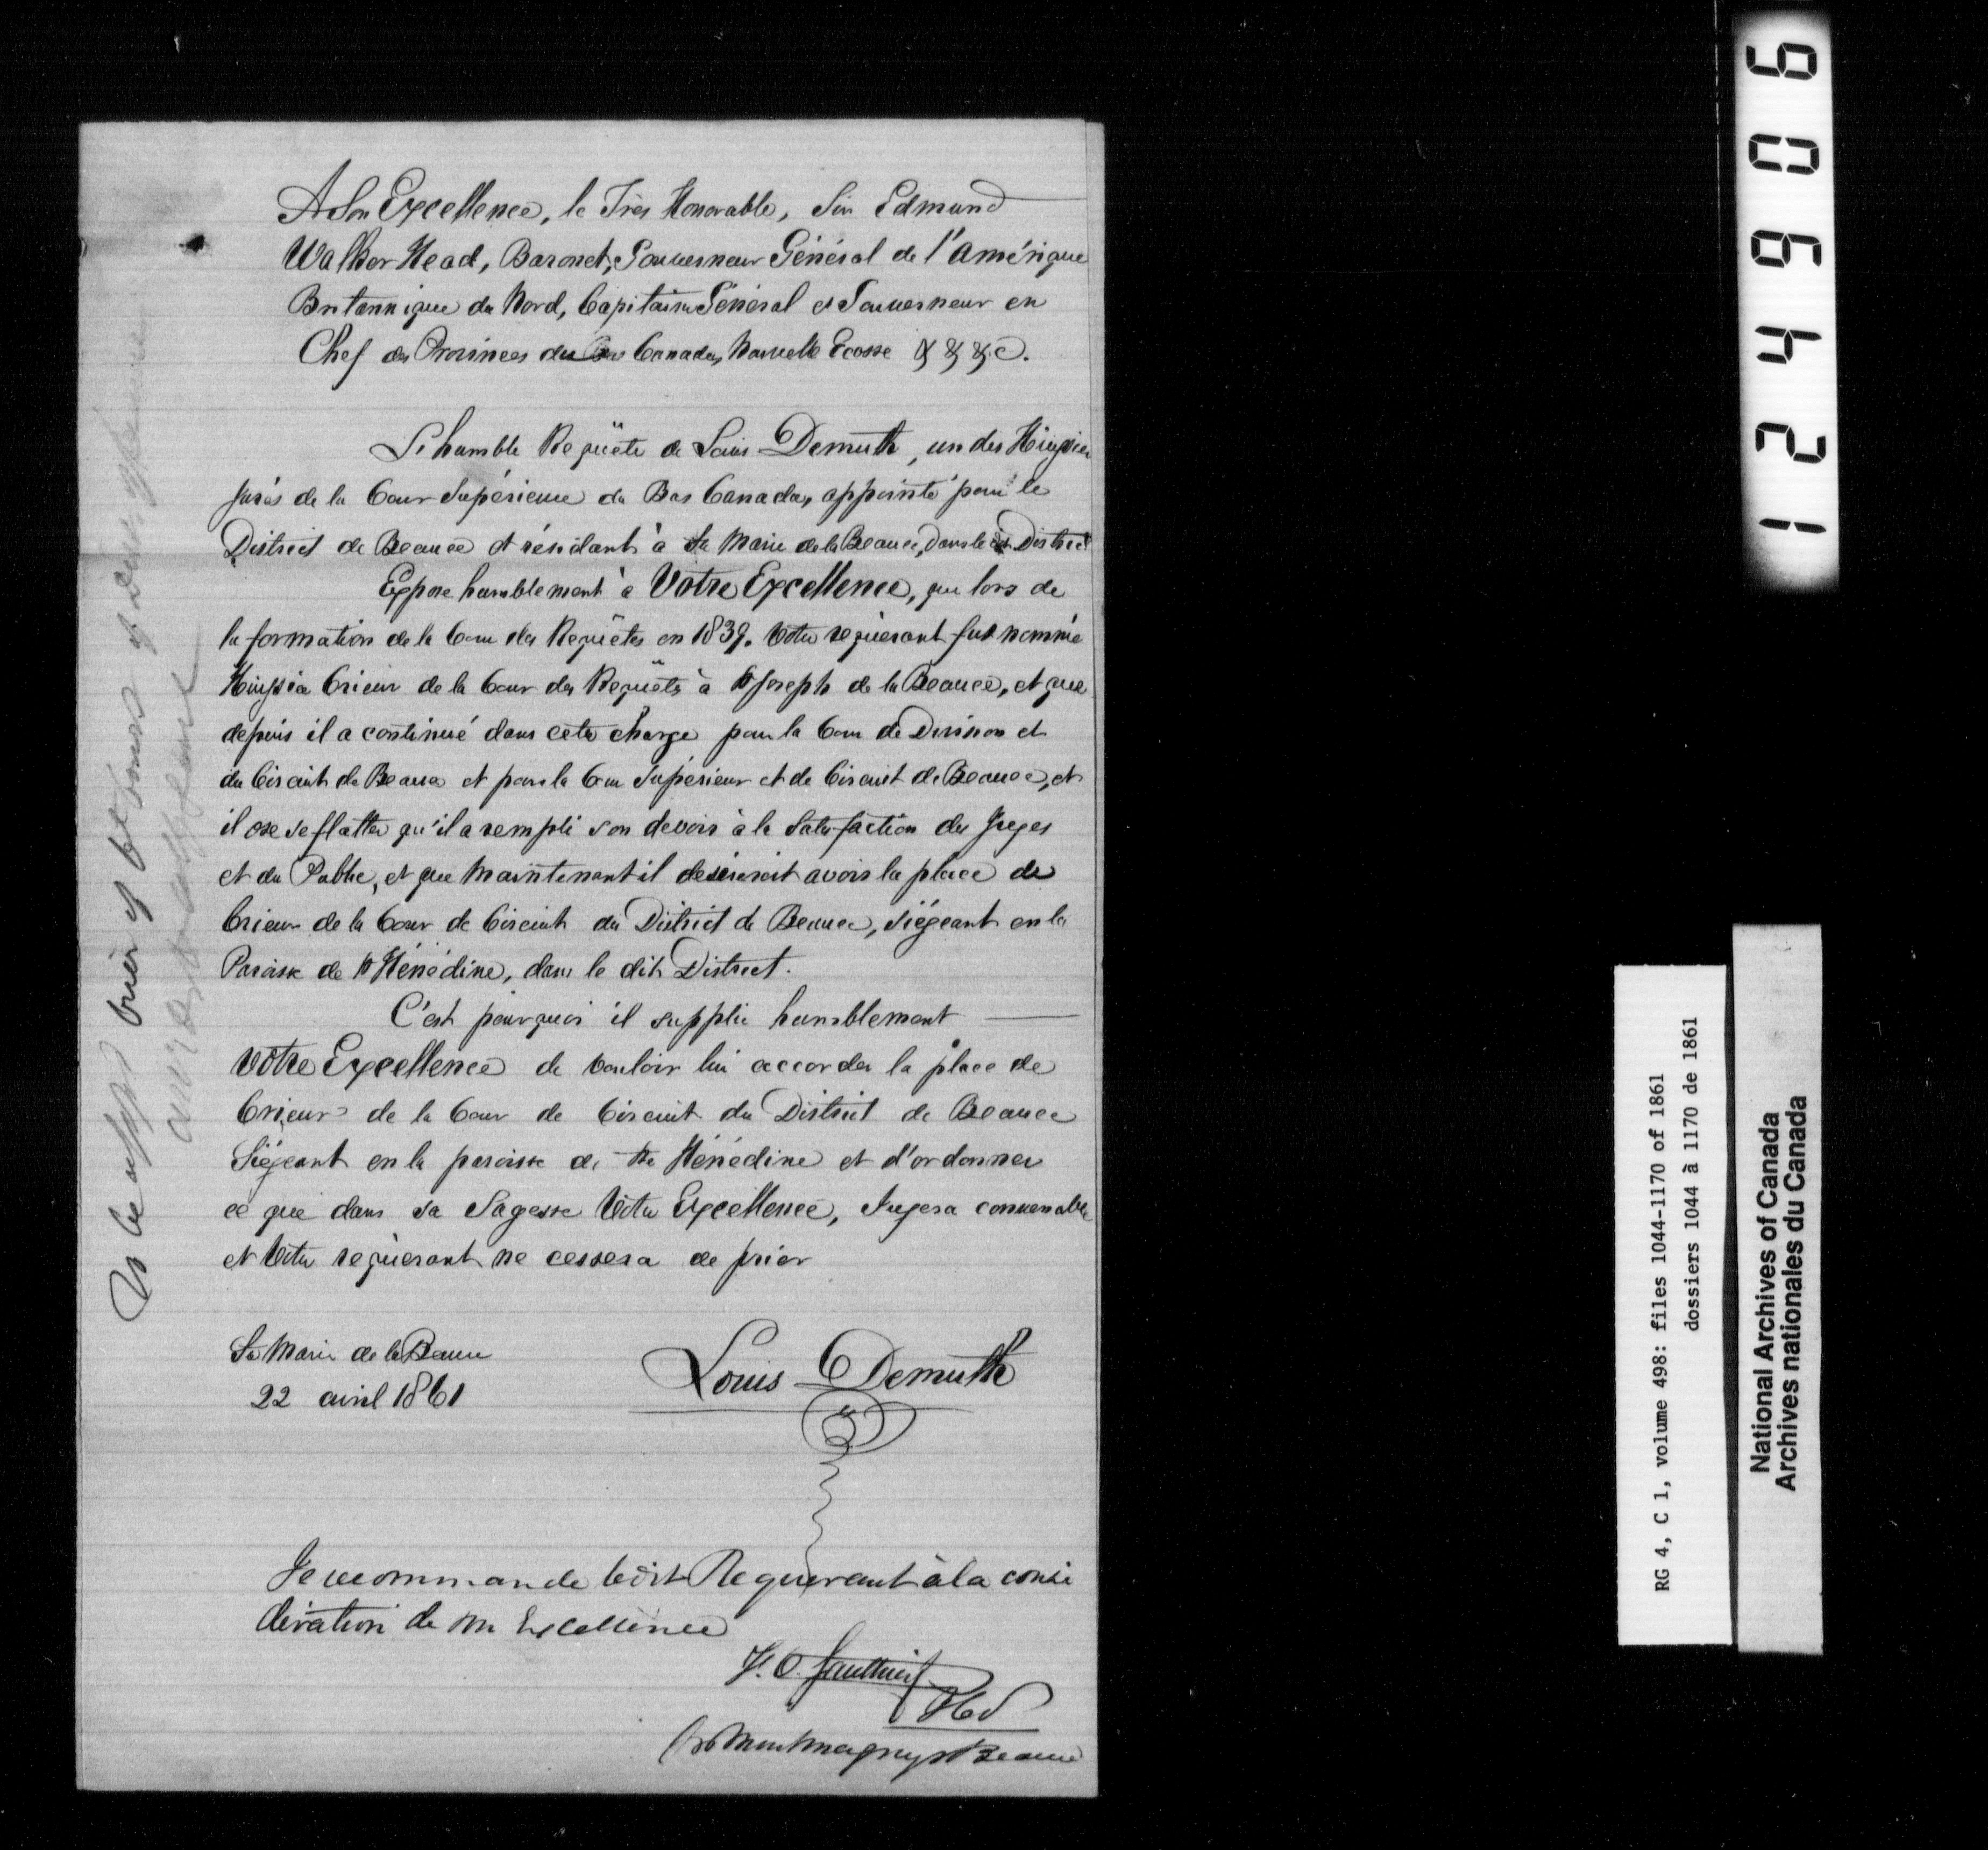 A Son Excellence, le Très Honorable, Sir Edmund
Walker Head, Baronet, Gouverneur Général de l'Amérique
Britannique du Nord, Capitaine Général et Gouverneur en
Chef des Provinces du Canada, Nouvelle Ecosse & & &c.
L'humble Requête de Louis Demuth, un des Huissiers
Jurés de la Cour Supérieure du Bas Canada, appointé pour le
District de Beauce et résidant à Ste Marie de la Beauce, dans le dit District
Expose humblement à Votre Excellence, que lors de
la formation de la Cour des Requêtes en 1839. Votre requérant fut nommé
Huissier Crieur de la Cour des Requêtes à St Joseph de la Beauce, et que
depuis il a continué dans cette charge pour la Cour de Division et
du Circuit de Beauce et pour la Cour Supérieur et de Circuit de Beauce, et
il ose se flatter qu'il a rempli son devoir à la Satisfaction des Juges
et du Public, et que maintenant il desirerait avoir la place de
Crieur de la Cour de Circuit du District de Beauce, siégeant en la
Paroisse de Ste Hénédine, dans le dit District.
C'est pourquoi il supplie humblement
Votre Excellence de vouloir lui accorder la place de
Crieur de la Cour de Circuit du District de Beauce
Siégeant en la paroisse de Ste Hénédine et d'ordonner
ce que dans sa Sagesse Votre Excellence, Jugera convenable
et Votre requérant ne cessera de prier
Ste Marie de la Beauce
22 avril 1861
Louis Demuth
Je recommande ledit Requerant à la consi
dération de son Excellence
Gauthier
Montmagny & Beauce
To be crier of
124906
RG 4, C 1, volume 498: files 1044-1170 of 1861
dossiers 1044 à 1170 de 1861
National Archives of Canada
Archives nationales du Canada